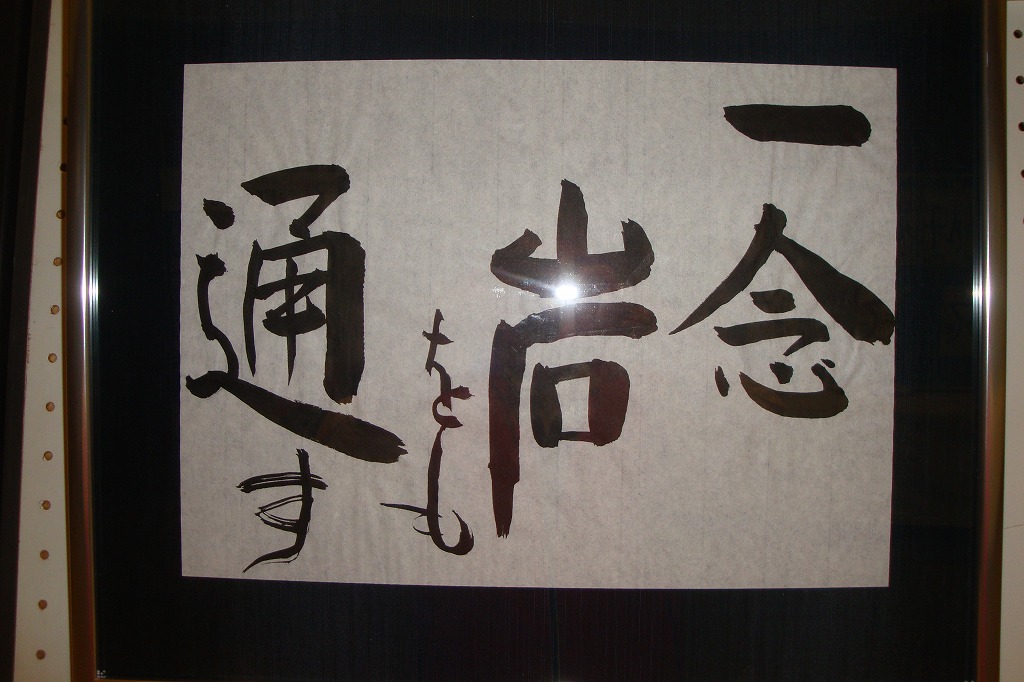 一念
岩
をも
通す